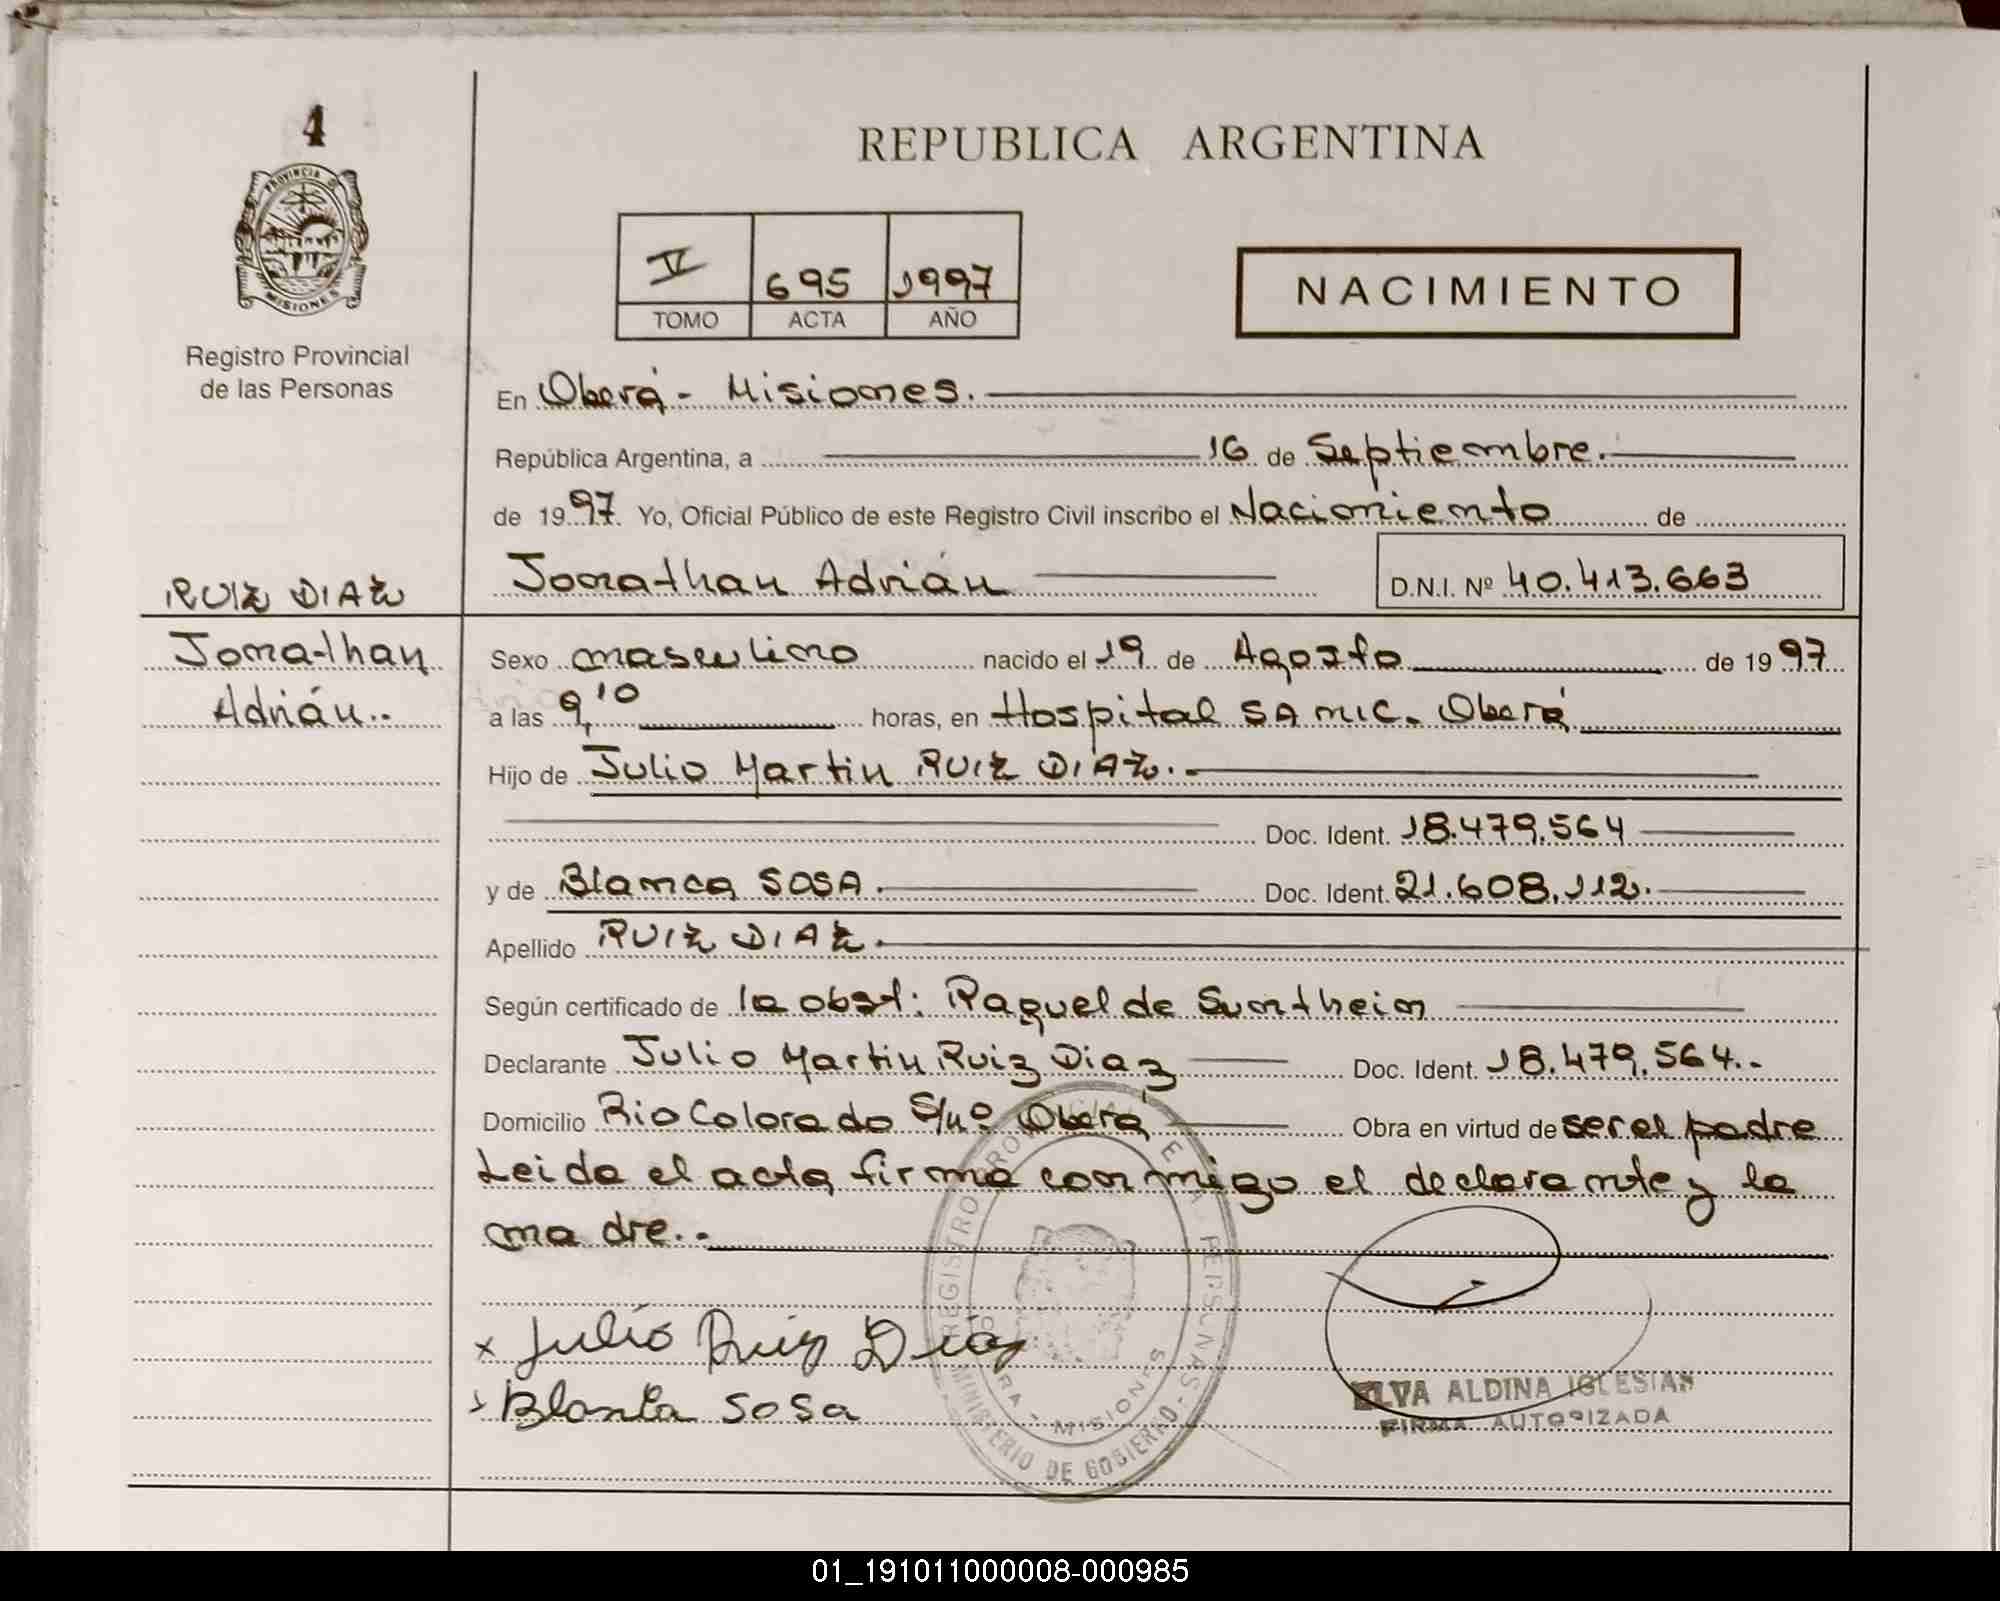 4
PROVINCIA D
MISIONES
Registro Provincial
de las Personas
REPUBLICA ARGENTINA
V 695 1997
TOMO ACTA AÑO
NACIMIENTO
En Oberá - Misiones.
República Argentina, a 16 de Septiembre.
de 1997. Yo, Oficial Público de este Registro Civil inscribo el Nacimiento de
Jonathan Adrián D.N.I. Nº 40.413.663
RUIZ DIAZ
Jonathan
Adrián..
Sexo masculino nacido el 19 de Agosto de 1997
a las 9,10 horas, en Hospital SAMIC. Oberá
Hijo de Julio Martin RUIZ DIAZ.
Doc. Ident. 18.479.564
y de Blanca SOSA. Doc. Ident. 21.608.112.
Apellido RUIZ DIAZ.
Según certificado de la obst: Raquel de Suntheim
Declarante Julio Martin Ruiz Diaz Doc. Ident. 18.479.564.-
Domicilio Rio Colorado S/nº Oberá Obra en virtud de ser el padre
Leida el acta firma conmigo el declarante y la
madre..
x Julio Ruiz Diaz
Blanca Sosa
ELVA ALDINA IGLESIAS
FIRMA AUTORIZADA
MISIONES
MINISTERIO DE GOBIERNO
01_191011000008-000985